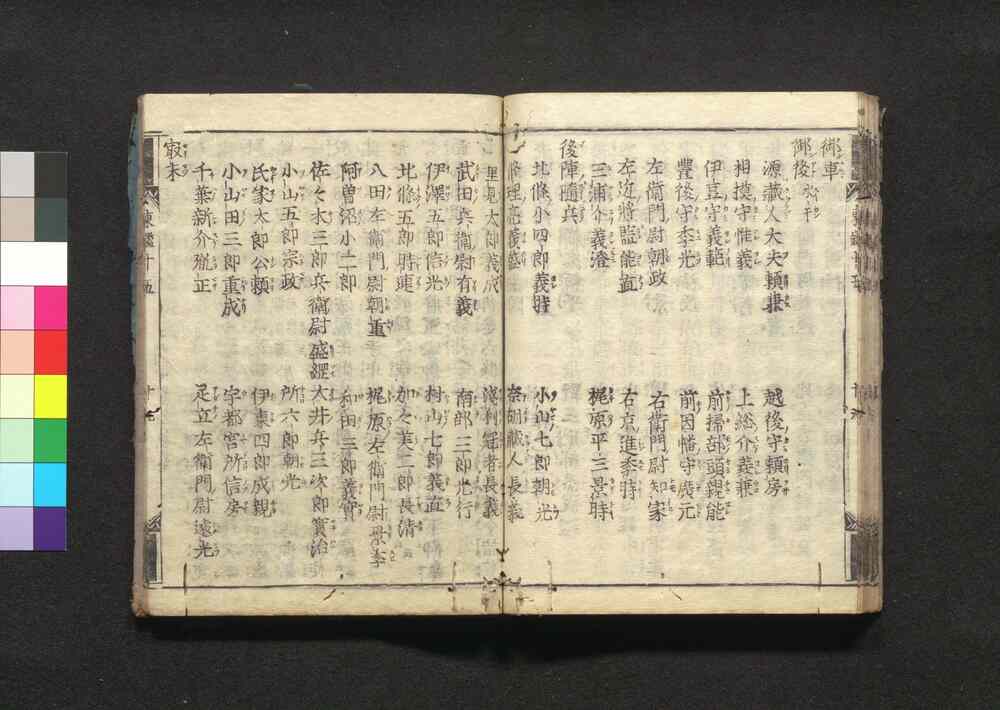 御車
御後 水干
源藏人大夫頼兼 越後守頼房
相摸守惟義 上総介義兼
伊豆守義範 前掃部頭親能
豊後守季光 前因幡守廣元
左衛門尉朝政 右衛門尉知家
左近將監能直 右京進季時
三浦介義澄 梶原平三景時
後陣随兵
北條小四郎義時 小山七郎朝光
修理亮義盛 奈胡蔵人長義
里見太郎義成 浅利冠者長義
武田兵衛尉有義 南部三郎光行
伊澤五郎信光 村山七郎義直
北條五郎時連 加々美二郎長清
八田左衛門尉朝重 梶原左衛門尉景季
阿曽沼小二郎 和田三郎義實
佐々木三郎兵衛尉盛綱 大井兵三次郎實治
小山五郎宗政 所六郎朝光
氏家太郎公頼 伊東四郎成親
小山田三郎重成 宇都宮所信房
千葉新介胤正 足立左衛門尉遠光
最末
東鑑十五